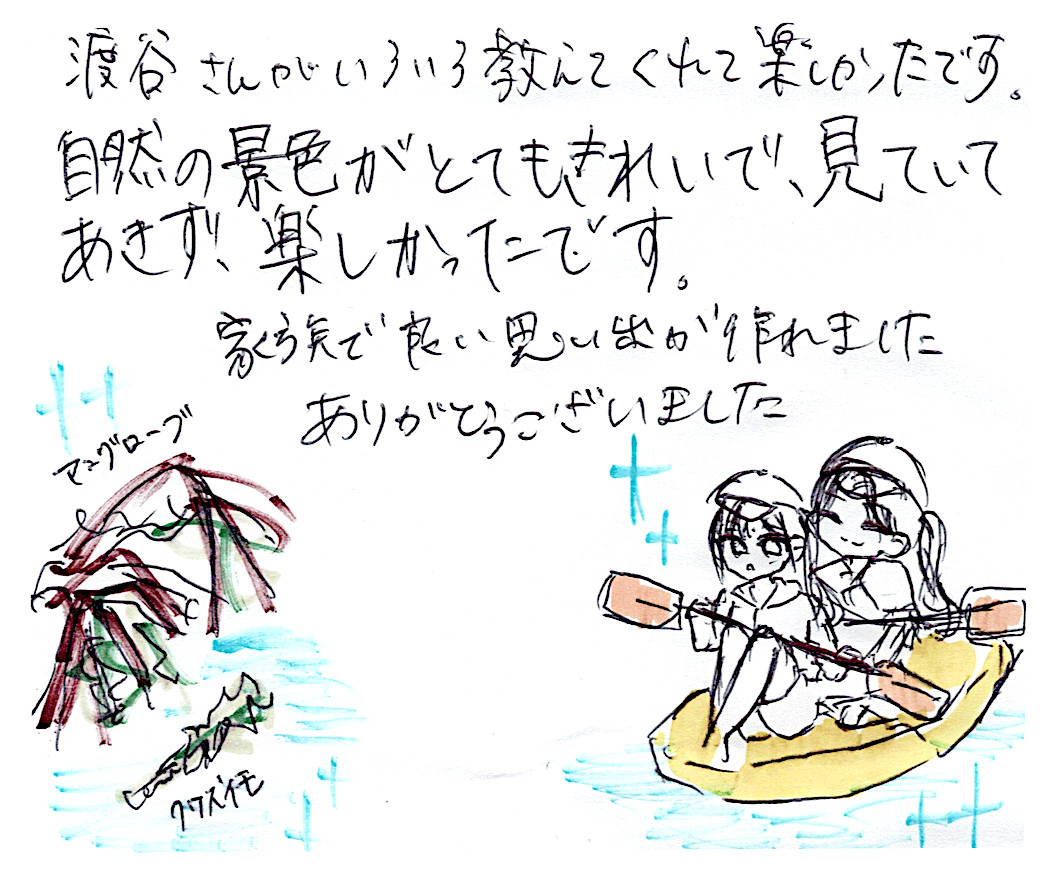 渡谷さんがいろいろ教えてくれて楽しかったです。
自然の景色がとてもきれいで、見ていて
あきず、楽しかったです。
家族で良い思い出が作れました
ありがとうございました
マングローブ
クワズイモ